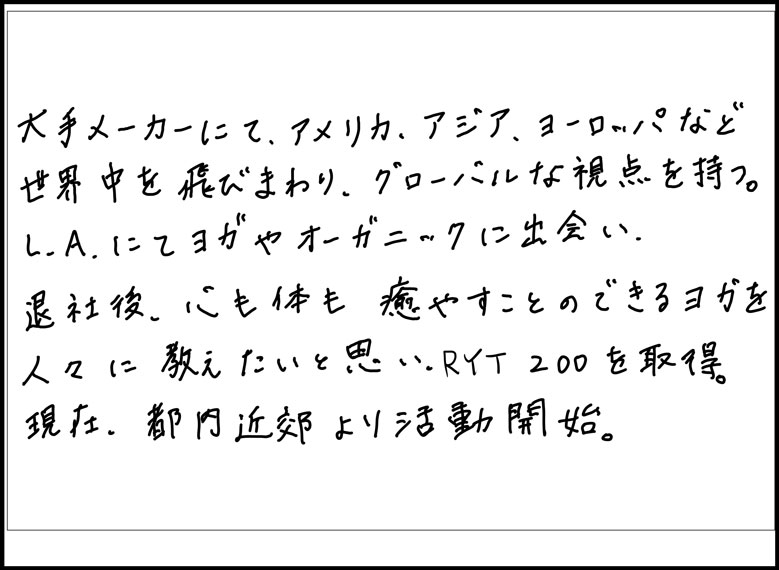 大手メーカーにて、アメリカ、アジア、ヨーロッパなど
世界中を飛びまわり、グローバルな視点を持つ。
L.A.にてヨガやオーガニックに出会い、
退社後、心も体も癒やすことのできるヨガを
人々に教えたいと思い、RYT 200を取得。
現在、都内近郊より活動開始。